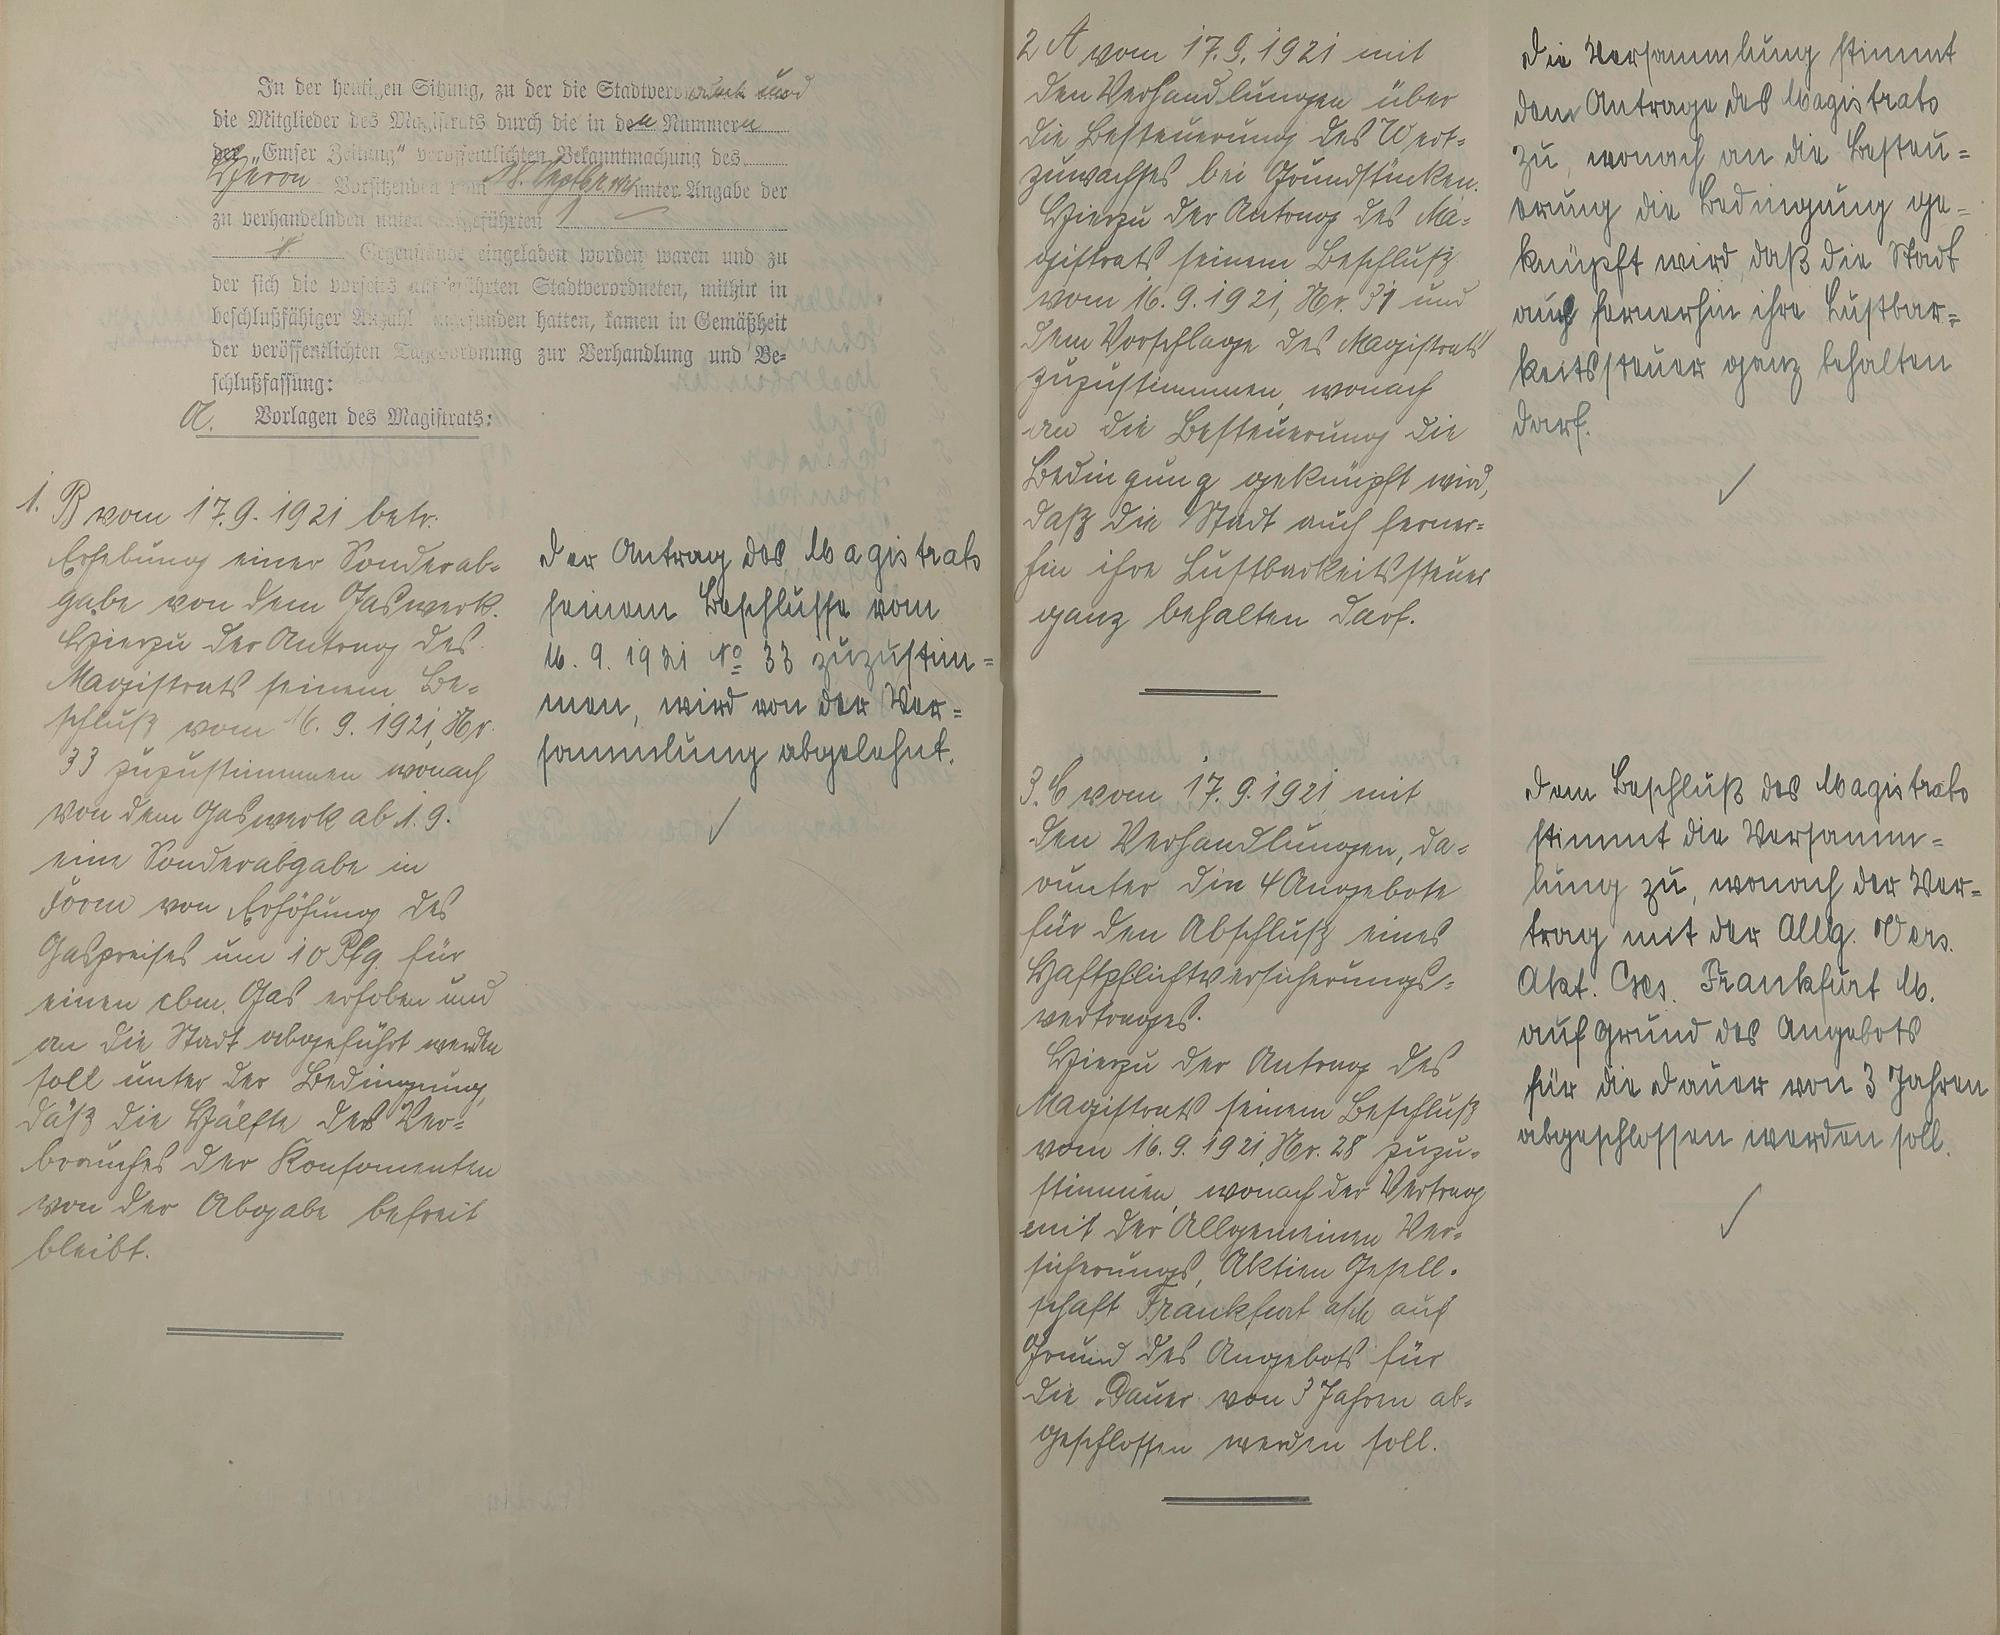 In der heutigen Sitzung, zu der die Stadtverordneten und
die Mitglieder des Magistrats durch die in den Nummern
der „Emser Zeitung“ veröffentlichten Bekanntmachung des
Herrn Vorsitzenden vom 18. Septbr. unter Angabe der
zu verhandelnden unten aufgeführten
Gegenstände eingeladen worden waren und zu
der sich die vorseits aufgeführten Stadtverordneten, mithin in
beschlußfähiger Anzahl eingefunden hatten, kamen in Gemäßheit
der veröffentlichten Tagesordnung zur Verhandlung und Be-
schlußfassung:
A. Vorlagen des Magistrats:
1. B vom 17.9.1921 betr.
Erhebung einer Sonderab-
gabe von dem Gaswerk.
Hierzu der Antrag des
Magistrats seinem Be-
schluß vom 16.9.1921, Nr.
33 zuzustimmen wonach
von dem Gaswerk ab 1.9.
eine Sonderabgabe in
Form von Erhöhung des
Gaspreises um 10 Pfg. für
einen cbm. Gas erhoben und
an die Stadt abgeführt werden
soll unter der Bedingung,
daß die Hälfte des Ver-
brauches der Konsomenten
von der Abgabe befreit
bleibt.
Der Antrag des Magistrats
seinem Beschlusse vom
16.9.1921 No 33 zuzustim=
men, wird von der Ver=
sammlung abgelehnt.
2 A vom 17.9.1921 mit
den Verhandlungen über
die Besteuerung des Wert=
zuwachses bei Grundstücken.
Hierzu der Antrag des Ma-
gistrats seinem Beschluß
vom 16.9.1921, Nr. 31 und
dem Vorschlage des Magistrats
zuzustimmen, wonach
an die Besteuerung die
Bedingung geknüpft wird,
daß die Stadt auch ferner=
hin ihre Lustbarkeitssteuer
ganz behalten darf.
Die Versammlung stimmt
dem Antrage des Magistrats
zu, wonach an die Besteu=
erung die Bedingung ge=
knüpft wird, daß die Stadt
auch fernerhin ihre Lustbar=
keitssteuer ganz behalten
darf.
3. C vom 17.9.1921 mit
den Verhandlungen, da-
runter die 4 Angebote
für den Abschluß eines
Haftpflichtversicherungs-
vertrages.
Hierzu der Antrag des
Magistrats seinem Beschluß
vom 16.9.1921, Nr. 28 zuzu-
stimmen, wonach der Vertrag
mit der Allgemeinen Ver-
sicherungs, Aktien Gesell-
schaft Frankfurt a/M auf
Grund des Angebots für
die Dauer von 3 Jahren ab-
geschlossen werden soll.
Dem Beschluß des Magistrats
stimmt die Versamm=
lung zu, wonach der Ver=
trag mit der Allg. Vers.
Akt. Ges. Frankfurt M.
auf Grund des Angebots
für die Dauer von 3 Jahren
abgeschlossen werden soll.